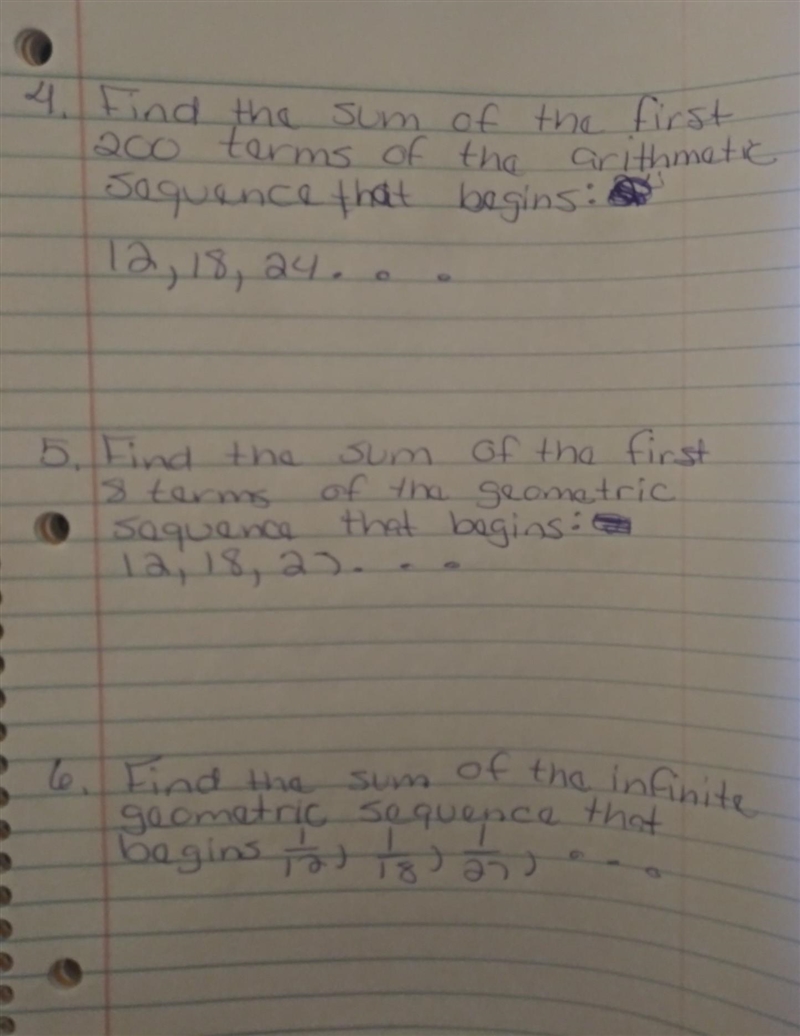 4. Find the sum of the first
200 terms of the arithmetic
sequence that begins:
12, 18, 24. . .
5. Find the sum of the first
8 terms of the geometric
sequence that begins:
12, 18, 27. . .
6. Find the sum of the infinite
geometric sequence that
begins 1/12, 1/18, 1/27, . . .